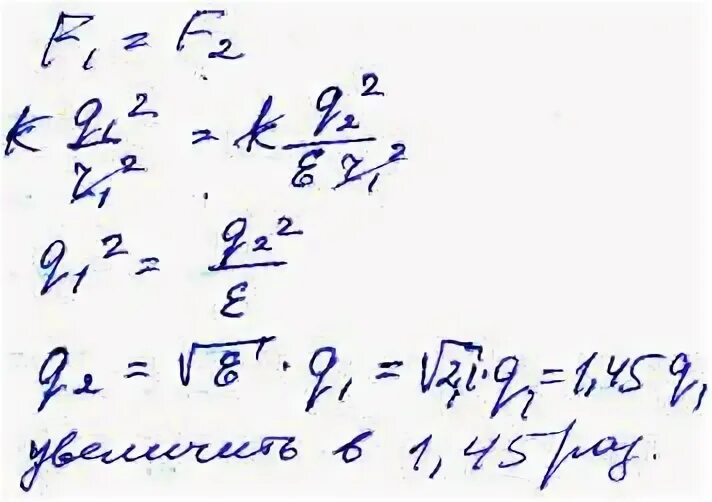 F₁ = F₂
k q₁²/r₁² = k q₂²/(ε r₁²)
q₁² = q₂²/ε
q₂ = √ε · q₁ = √2,1 · q₁ = 1,45 q₁
увеличить в 1,45 раз.